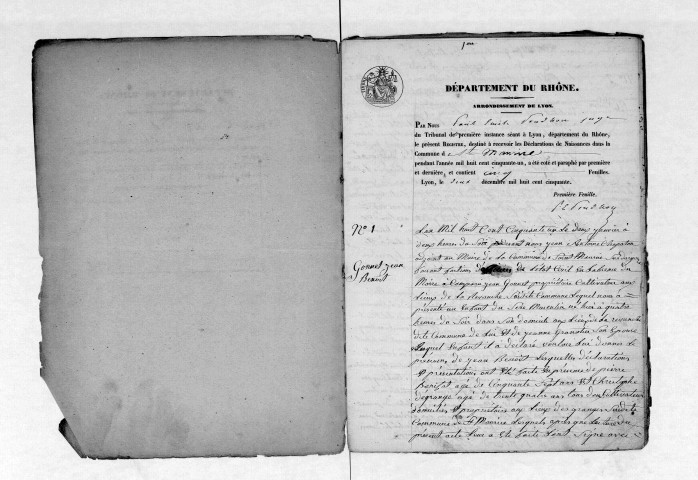 1ere
DÉPARTEMENT DU RHÔNE.
ARRONDISSEMENT DE LYON.
PAR NOUS Paul juge
du Tribunal de première instance séant à Lyon, département du Rhône,
le présent REGISTRE, destiné à recevoir les Déclarations de Naissances dans la
Commune d St Maurice
pendant l'année mil huit cent cinquante-un, a été coté et paraphé par première
et dernière, et contient cinq Feuilles.
Lyon, le deux décembre mil huit cent cinquante.
Première Feuille.
N° 1
Gonnet jean
Benoit
L'an Mil huit Cent Cinquante un le deux janvier à
deux heures du Soir pardevant nous jean Antoine
adjoint au Maire de la Commune de Saint Maurice
faisant fonctions de de l'état Civil En l'absence du
Maire a Comparu jean Gonnet propriétaire Cultivateur au
lieu de la Susdite Commune Lequel nous a
présenté un Enfant du Sexe Masculin né hier à quatre
heures du Soir dans Son domicile au lieu de
dite Commune de Lui Et de jeanne Son Epouse
Auquel Enfant il a déclaré vouloir Lui donner les
prénoms de jean Benoît Lesquelles déclarations
Et présentations ont Eté faite En présence de pierre
agé de Cinquante Sept ans Et Christophe
agé de trente quatre ans tous deux Cultivateurs
domiciliés Et propriétaires au lieu des granges Susdite
Commune de St Maurice Lesquels après que Lecture du
présent acte Leur a Eté faite Ont Signé avec